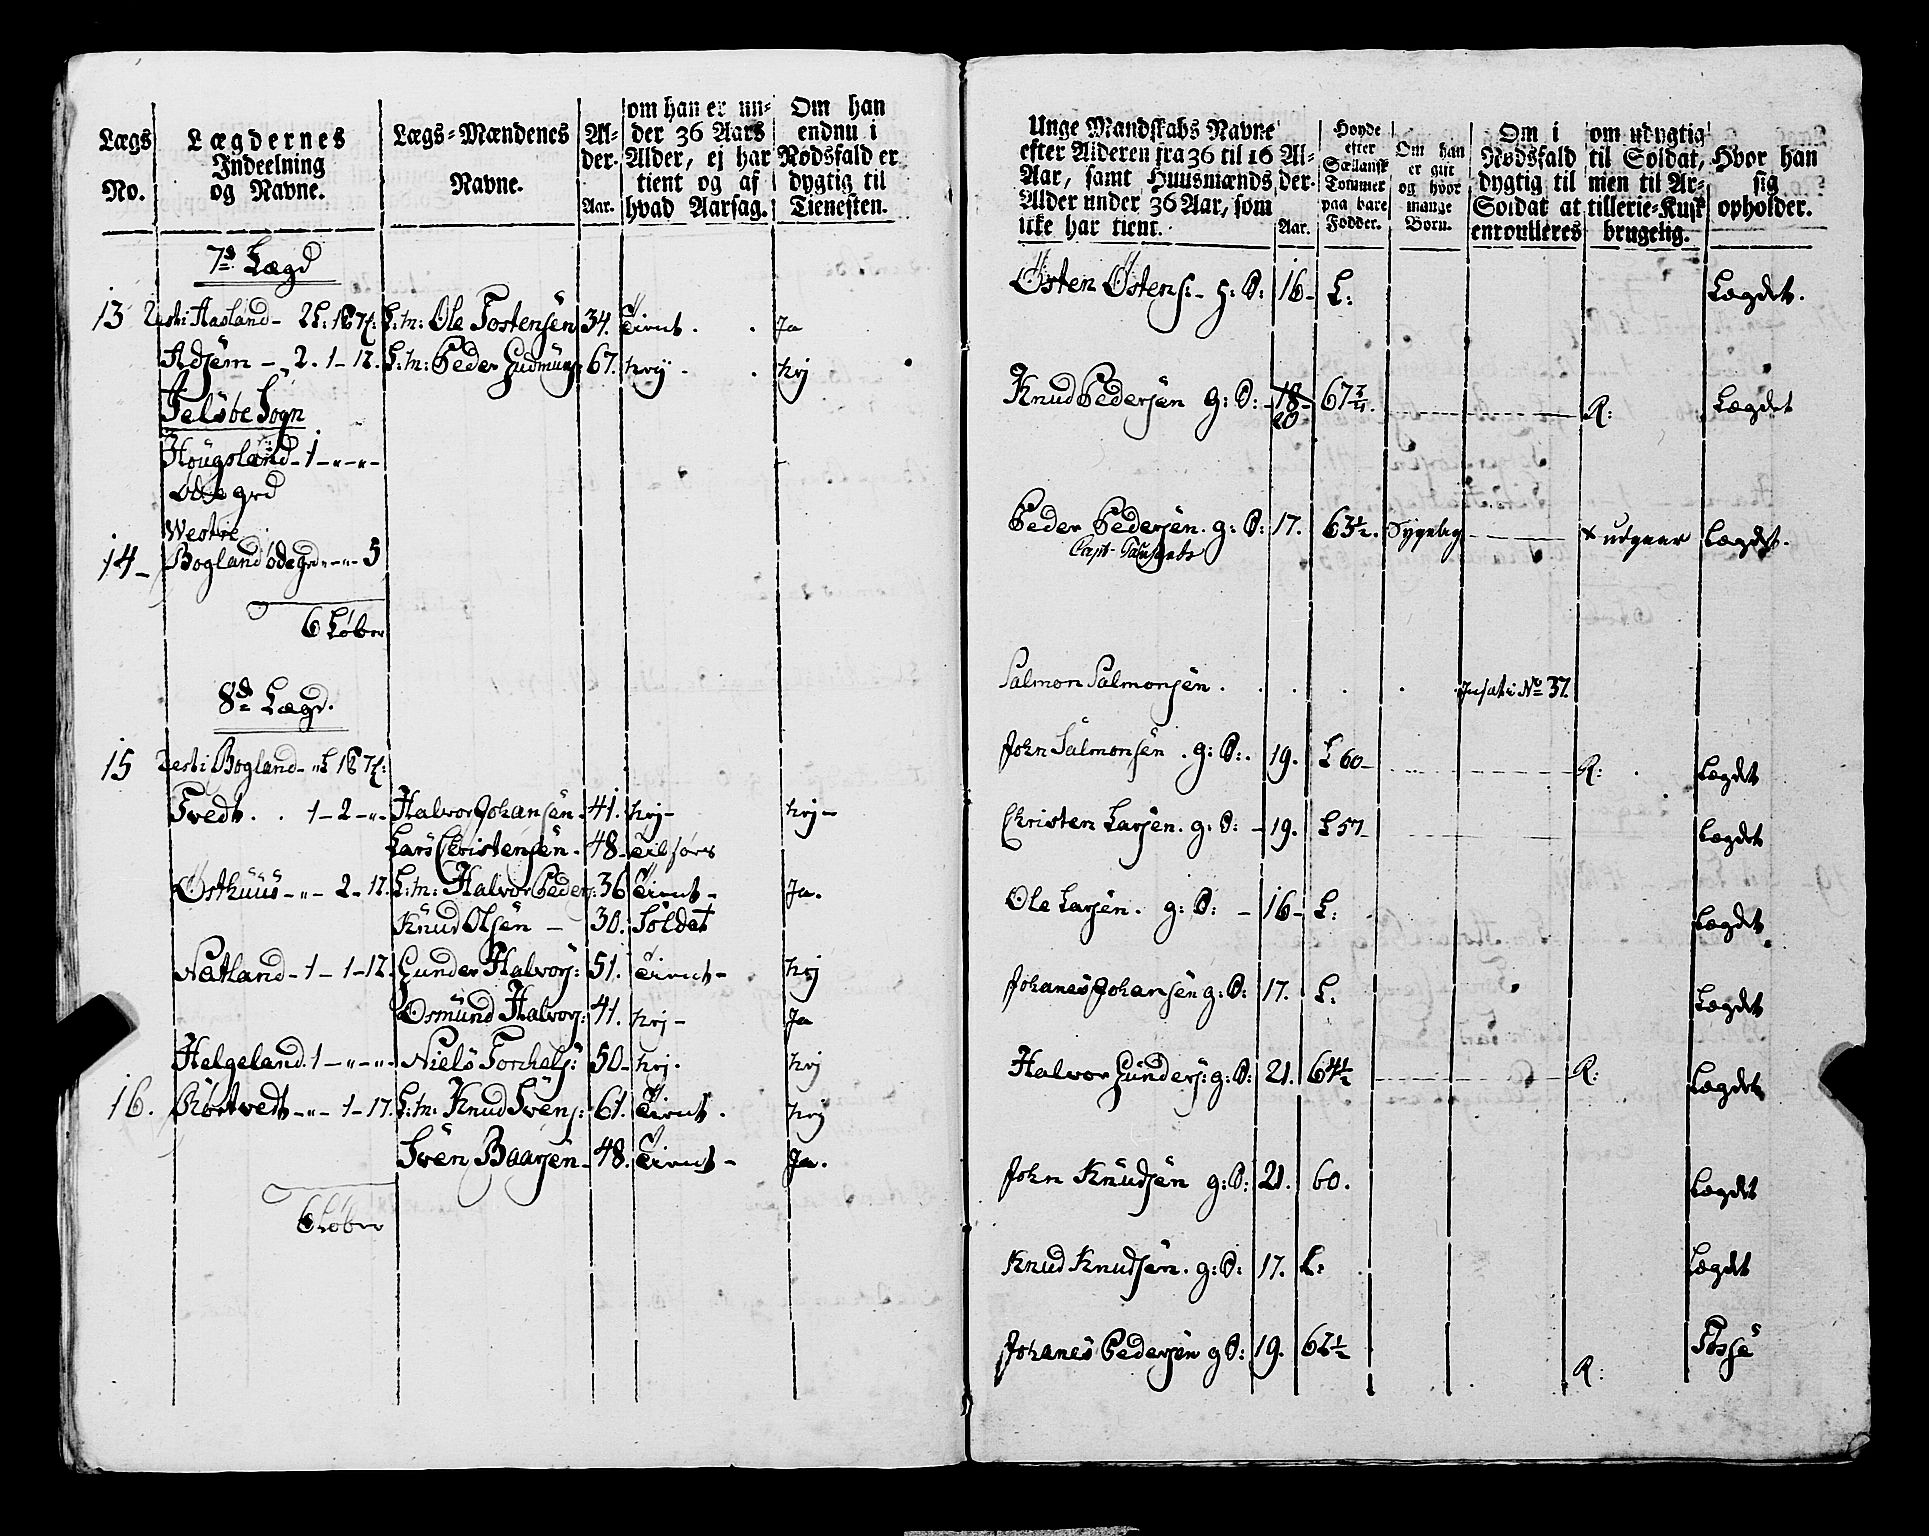 Lægs No.
Lægdernes Indeelning og Navne.
Lægs-Mændenes Navne.
Al-der. Aar.
om han er un-der 36 Aars Alder, ej har tient og af hvad Aarsag.
Om han endnu i Nødsfald er dygtig til Tienesten.
7de Lægd
13 Resti Hasland - 2 L: 1 B 7 f: L:m: Ole Tostensen 34. Tient. Ja
Adsem - 2. 1 - 12. L:m: Peder Gudmuns 67. nej nej
Feløbe Sogn
Hougsland - 1 - " - " -
Øde grd
Westre
14 - Bogland øde grd " - " - 5
6 Løber
8de Lægd.
15 Resti Bogland - " L 1 B 7 f:
Tvedt. . 1 - 2 - " - Halvor Johansen - 41. nej - nej -
Lars Christensen - 48 -
Østhuus - " - 2 - 12. L:m: Halvor Peders: 36 Tient - Ja.
Knud Olsen - 30. Soldat
Natland - 1 - 1 - 12. Gunder Halvors: 51. Tient - nej
Osmund Halvors: 41. nej - Ja
Helgeland. 1 - " - " - Niels Torkels: 50 - nej. nej
16. Røstvedt - " - 1 - 17. L:m: Knud Svens: 61. Tient. nej
Sven Baarsen - 48. Tient - Ja.
6 Løber
Unge Mandskabs Navne efter Alderen fra 36 til 16 Aar, samt Huusmænds Alder under 36 Aar, som icke har tient.
Al-der. Aar.
Høyde efter Sællansk Tommer paa bare Fødder.
Om han er gift og hvor mange Børn.
Om i Nødsfald dygtig til Soldat at enroulleres
om udygtig til Soldat, men til Ar-tillerie-Kusk brugelig.
Hvor han sig opholder.
Østen Østens: - g: D: 16 - L: Lægdet.
Knud Pedersen g: D: - 18 - 67 R: Lægdet
20
Peder Pedersen. g: D: 17. 63 1/2. Sygelig + udgaar Lægdet.
Salmon Salmonsen . . . . . Insat i No 37.
John Salmonsen . g: D: . 19. L 60 - R: . Lægdet
Christen Larsen. g: D: - 19. L 57 - Lægdet
Ole Larsen. g: D: - 16 - L: Lægdet
Johanes Johansen g: D: 17. L: Lægdet
Halvor Gunders: g: D: 21. 64 1/2 R: Lægdet
John Knudsen g: D: 21. 60. Lægdet
Knud Knudsen. g: D: 17. L: Lægdet
Johanes Pedersen g D: 19. 62 1/2 R: Fosse